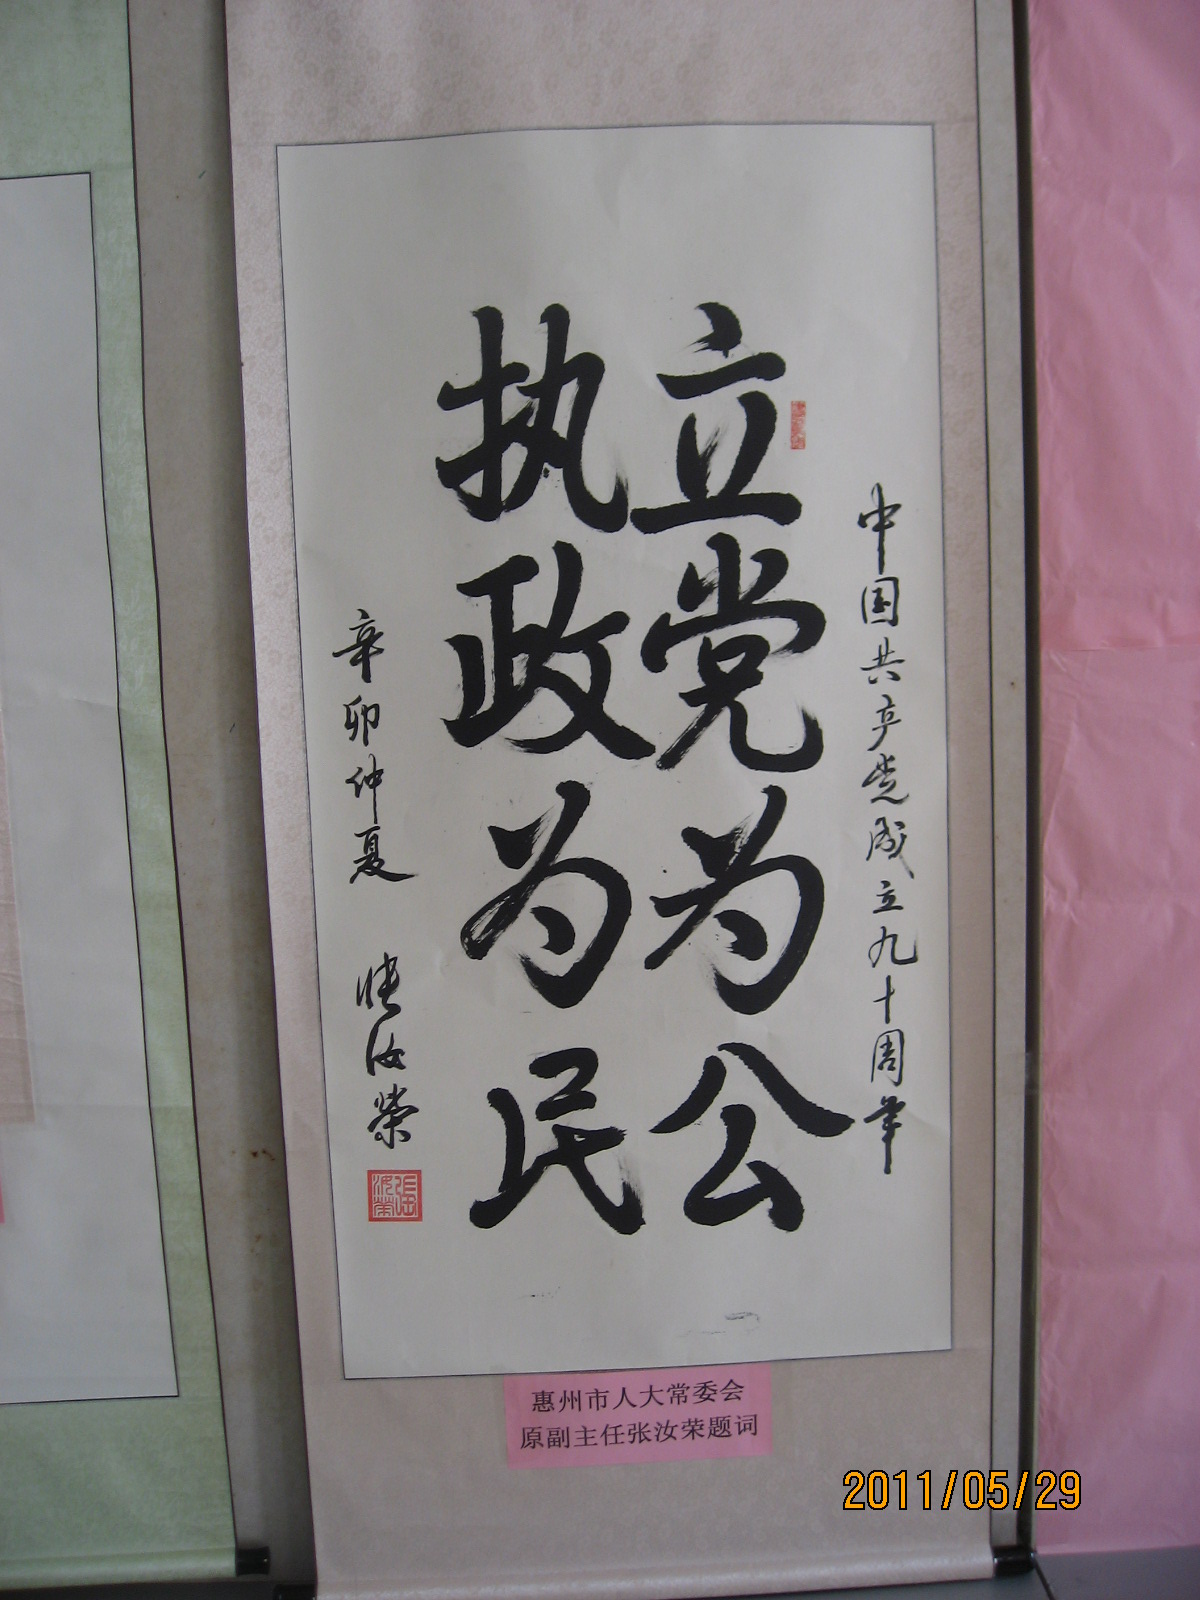 中国共产党成立九十周年
立党为公
执政为民
辛卯仲夏 张汝荣
张汝荣
惠州市人大常委会
原副主任张汝荣题词
2011/05/29